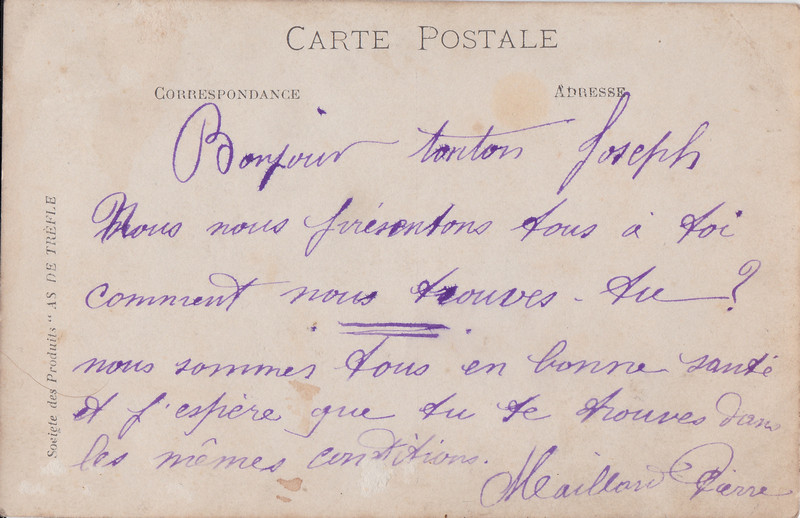 CARTE POSTALE
CORRESPONDANCE
ADRESSE
Bonjour tonton Joseph
Nous nous présentons tous à toi
comment nous trouves-tu ?
nous sommes tous en bonne santé
et j'espère que tu te trouves dans
les mêmes conditions.
Maillard Pierre
Societe des Produits "AS DE TRÈFLE